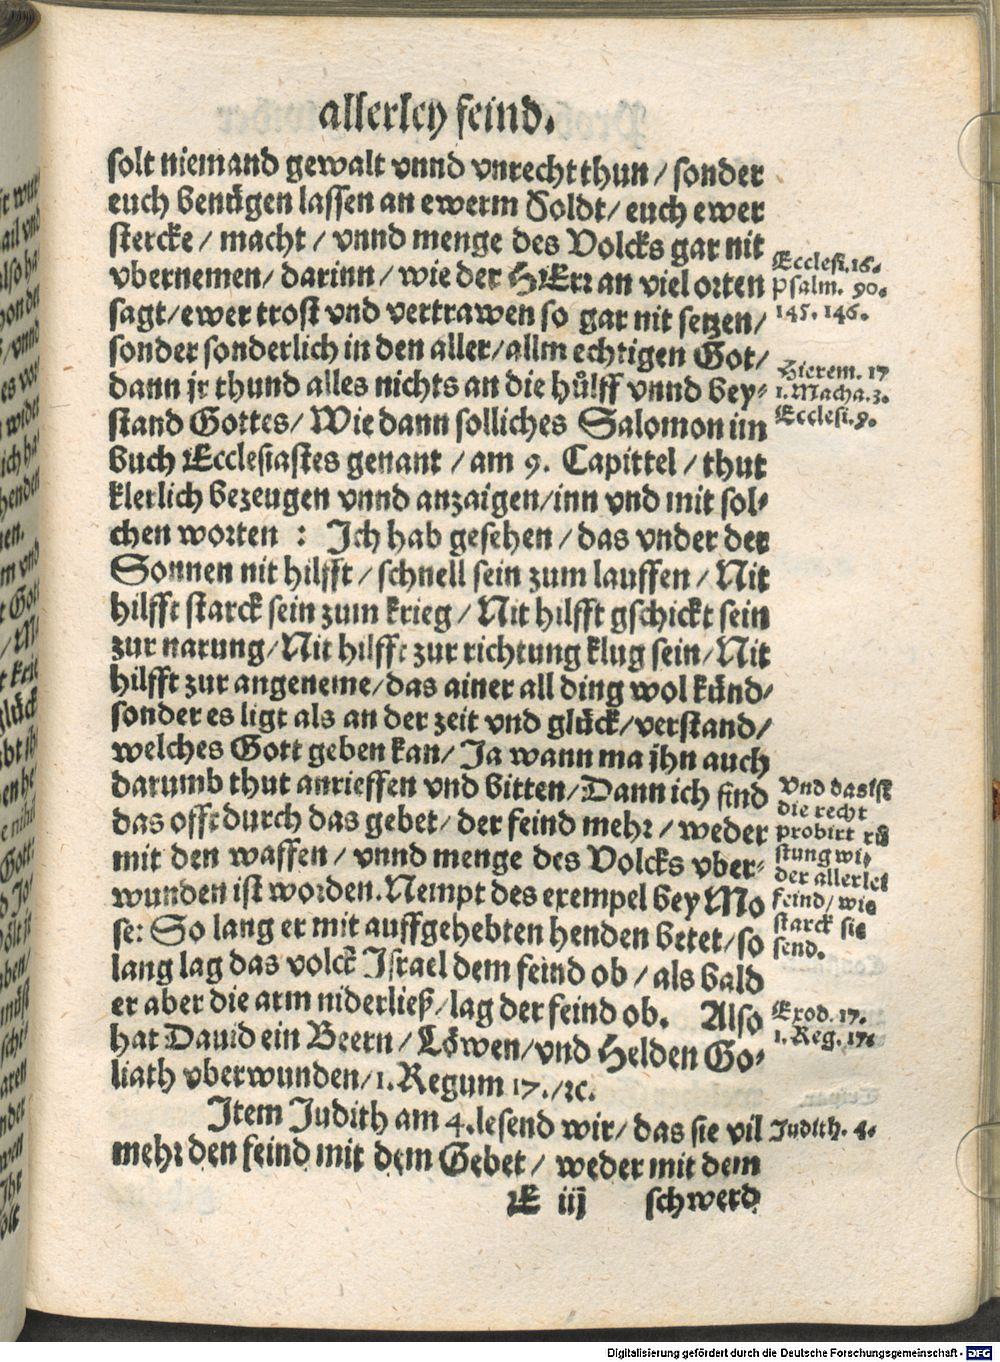 allerley feind.
solt niemand gewalt vnnd vnrecht thun / sonder
euch benügen lassen an ewerm Soldt / euch ewer
stercke / macht / vnnd menge des Volcks gar nit
vbernemen / darinn / wie der HErr an viel orten
sagt / ewer trost vnd vertrawen so gar nit setzen /
sonder sonderlich in den aller / allm echtigen Got /
dann jr thund alles nichts an die hůlff vnnd bey-
stand Gottes / Wie dann solliches Salomon im
buch Ecclesiastes genant / am 9. Capittel / thut
klerlich bezeugen vnnd anzaigen / inn vnd mit sol-
chen worten : Ich hab gesehen / das vnder der
Sonnen nit hilfft / schnell sein zum lauffen / Nit
hilfft starck sein zum krieg / Nit hilfft gschickt sein
zur narung / Nit hilfft zur richtung klug sein / Nit
hilfft zur angeneme / das ainer all ding wol künd /
sonder es ligt als an der zeit vnd glück / verstand /
welches Gott geben kan / Ja wann ma ihn auch
darumb thut anrieffen vnd bitten / Dann ich find
das offt durch das gebet / der feind mehr / weder
mit den waffen / vnnd menge des Volcks vber-
wunden ist worden. Nempt des exempel bey Mo
se: So lang er mit auffgehebten henden betet / so
lang lag das volck Israel dem feind ob / als bald
er aber die arm niderließ / lag der feind ob. Also
hat Dauid ein Beern / Löwen / vnd Helden Go-
liath vberwunden / 1. Regum 17. / ꝛc.
Item Judith am 4. lesend wir / das sie vil
mehr den feind mit dem Gebet / weder mit dem
E iij schwerd
Ecclesi. 16.
Psalm. 90.
145. 146.
Hierem. 17
1. Macha. 3.
Ecclesi. 9.
Vnd das ist
die recht
probirt rü
stung wi-
der allerlei
feind / wie
starck sie
send.
Exod. 17.
1. Reg. 17.
Judith. 4.
Digitalisierung gefördert durch die Deutsche Forschungsgemeinschaft - DFG